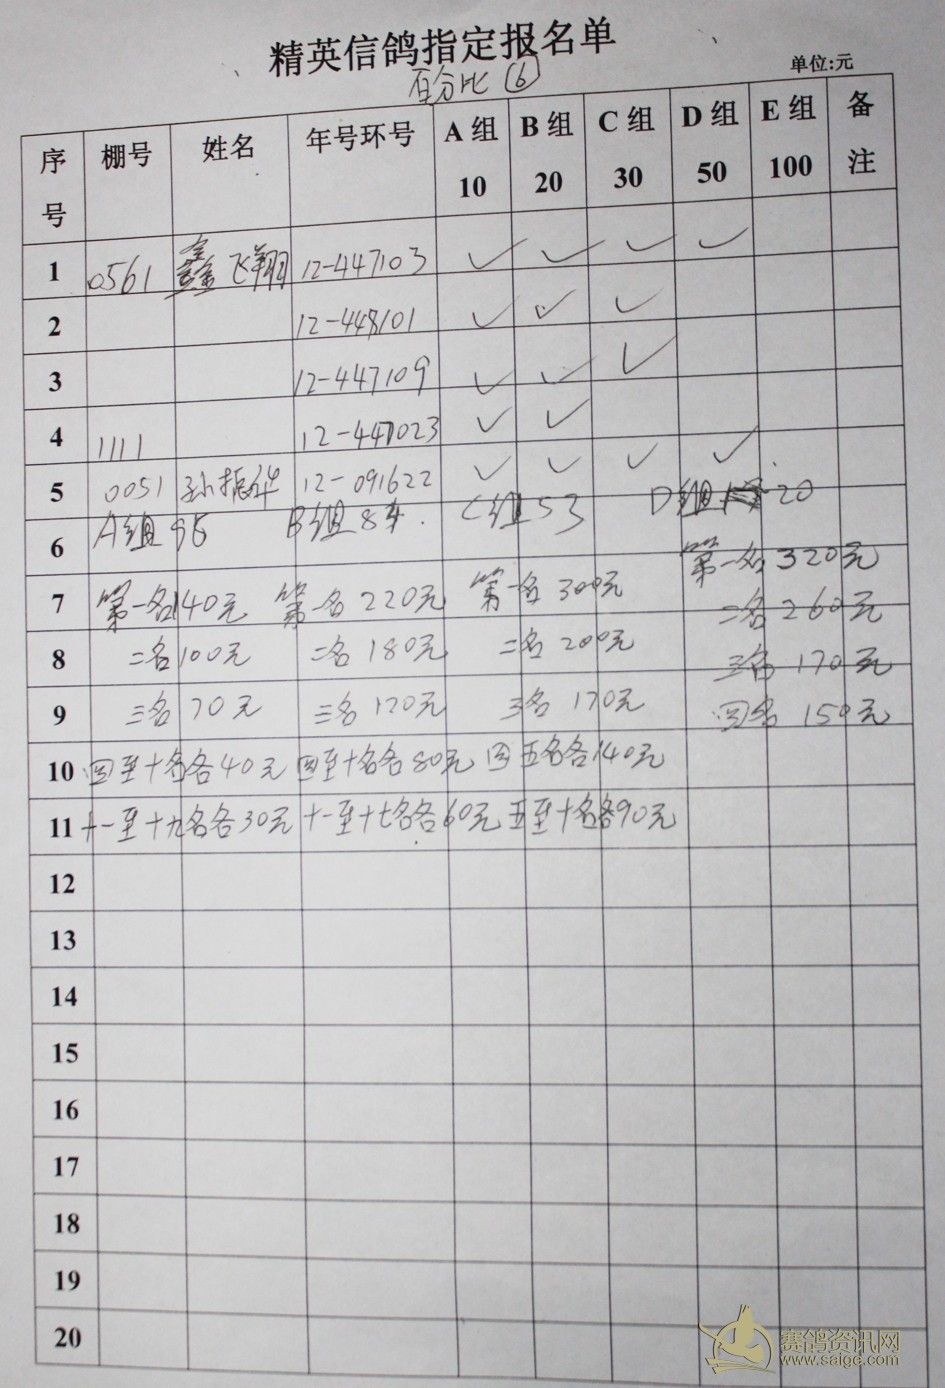 精英信鸽指定报名单
百分比 ⑥
单位:元
序号 棚号 姓名 年号环号 A组 10 B组 20 C组 30 D组 50 E组 100 备注
1 0561 鑫飞翔 12-447103 ✓ ✓ ✓ ✓
2 12-448101 ✓ ✓ ✓
3 12-447109 ✓ ✓ ✓
4 1111 12-447023 ✓ ✓
5 0051 孙振华 12-091622 ✓ ✓ ✓ ✓
6 A组95 B组84. C组53 D组20
7 第一名140元 第一名220元 第一名300元 第一名320元
二名260元
8 二名100元 二名180元 二名200元
三名170元
9 三名70元 三名120元 三名170元 四名150元
10 四至十名各40元 四至十名各80元 四五名各140元
11 十一至十九名各30元 十一至十七名各60元 五至十名各90元
12
13
14
15
16
17
18
19
20
赛鸽资讯网
www.saige.com